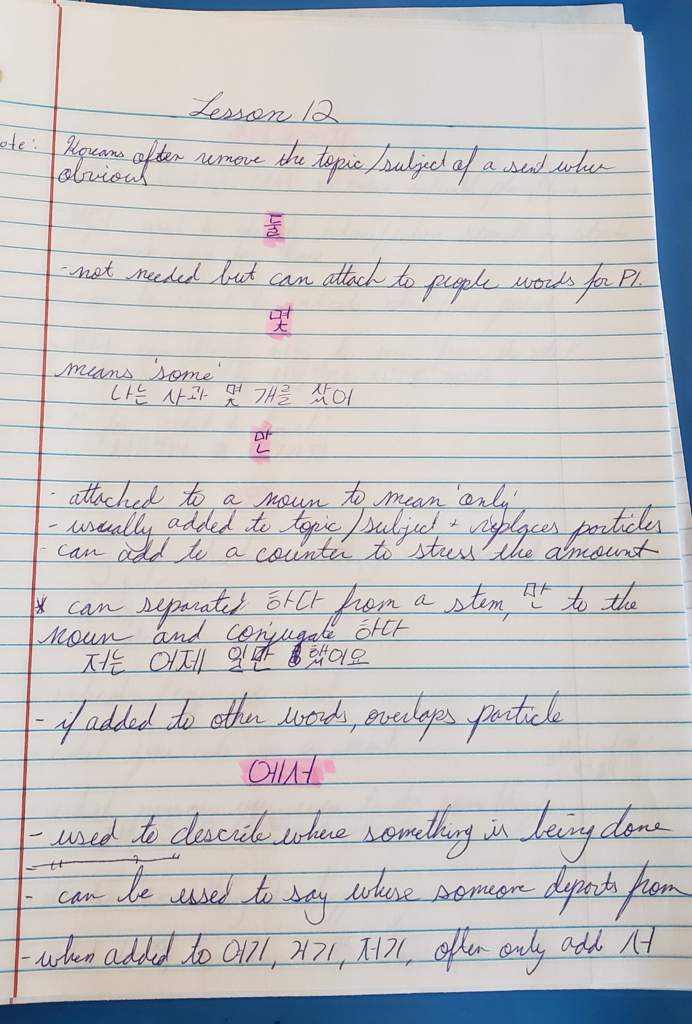 Lesson 12
ote: Koreans often remove the topic/subject of a sent when
obvious
들
- not needed but can attach to people words for Pl.
몇
means 'some'
나는 사과 몇 개를 샀어
만
- attached to a noun to mean 'only'
- usually added to topic/subject + replaces particles
- can add to a counter to stress the amount
* can separated 하다 from a stem, 만 to the
noun and conjugate 하다
저는 어제 일만 했어요
- if added to other words, overlaps particle
에서
- used to describe where something is being done
- can be used to say where someone departs from
- when added to 여기, 거기, 저기, often only add 서